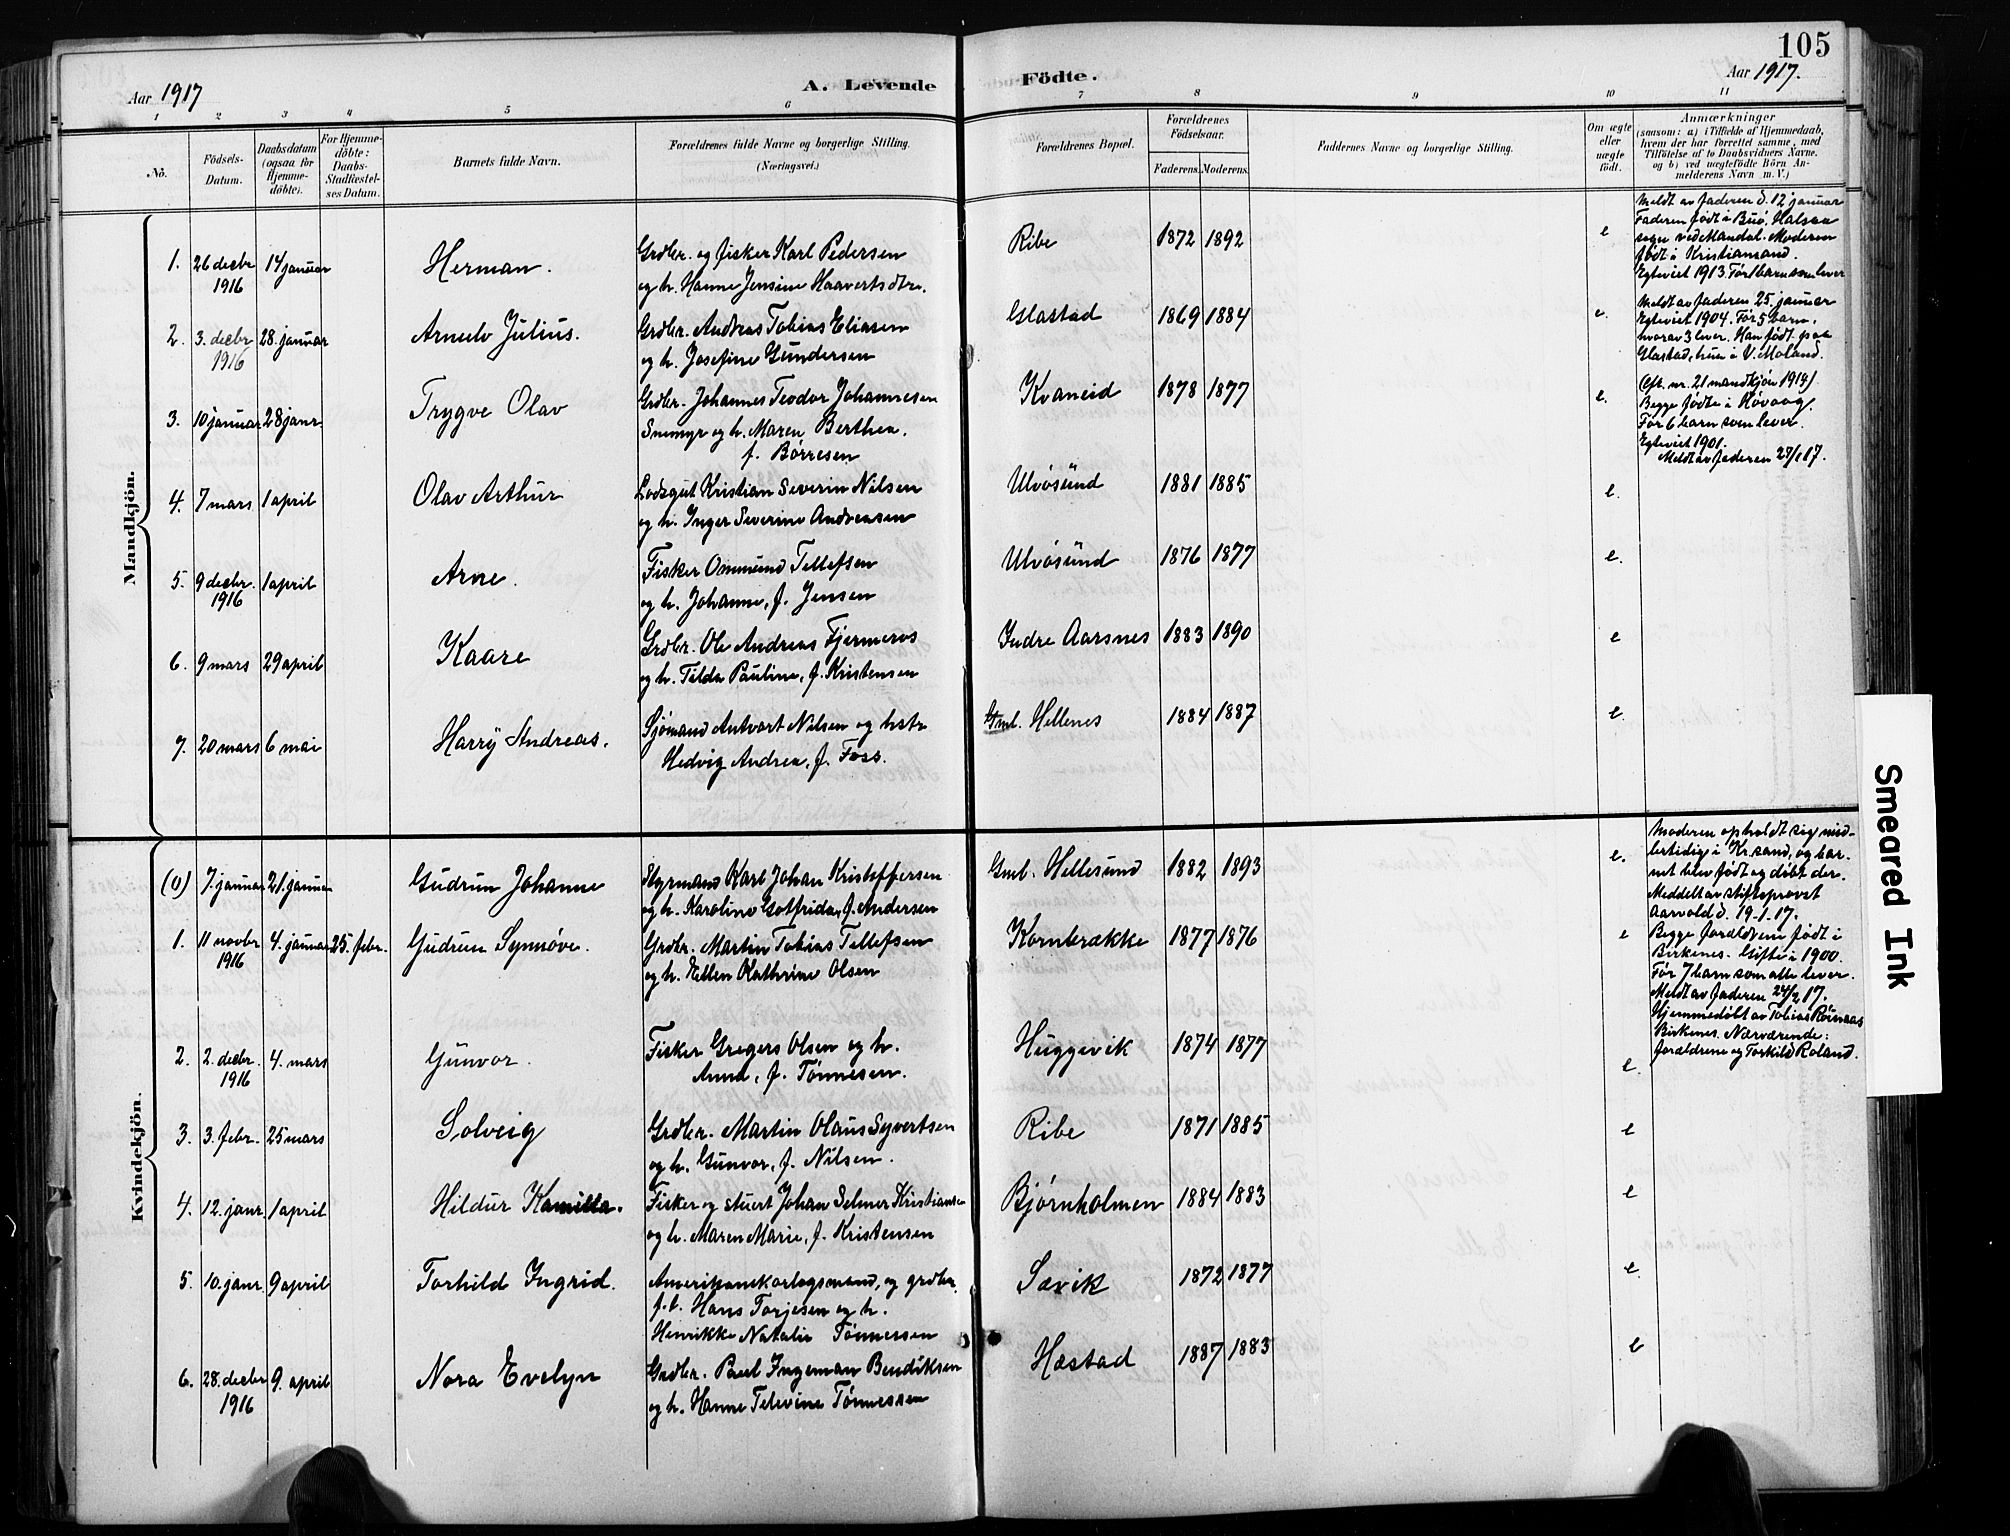 105
Aar 1917
A. Levende Födte.
Aar 1917.
1 2 3 4 5 6 7 8 9 10 11
No.
Födsels-
Datum.
Daabsdatum
(ogsaa for
Hjemme-
döbte).
For Hjemme-
döbte:
Daabs-
Stadfæstel-
ses Datum.
Barnets fulde Navn.
Forældrenes fulde Navne og borgerlige Stilling.
(Næringsvei.)
Forældrenes Bopæl.
Forældrenes
Födselsaar.
Faderens. Moderens.
Faddernes Navne og borgerlige Stilling.
Om ægte
eller
uægte
födt.
Anmærkninger
(saasom: a) i Tilfælde af Hjemmedaab,
hvem der har forrettet samme, med
Tilföielse af to Daabsvidners Navne.
og b) ved uægtefödte Börn An-
melderens Navn m. V.)
Mandkjön.
1. 26 decbr 14 januar Herman. Grdbr. og fisker Karl Pedersen Ribe 1872 1892 e
1916 og h. Hanne Jensine Haavertsdtr.
Meldt av faderen d. 12 januar
Faderen født i Buø, Halsaa
sogn ved Mandal. Moderen
født i Kristiansand.
Egteviet 1913. Før 1 barn som lever
2. 3. decbr 28. januar Arnulv Julius. Grdbr. Andreas Tobias Eliasen Glastad 1869 1884 e.
1916 og h. Josefine Gundersen
Meldt av faderen 25. januar
Egteviet 1904. Før 5 barn,
hvorav 3 lever. Han født paa
Glastad, hun i V. Moland.
3. 10 januar 28 janr. Trygve Olav Grdbr. Johannes Teodor Johannesen Kvaneid 1878 1877 e.
Snemyr og h. Maren Berthea.
f. Børresen
(Cfr. nr. 21 mandkjøn 1914).
Begge fødte i Høvaag.
Før 6 barn som lever.
Egteviet 1901.
Meldt av faderen 27/1 17.
4. 7 mars 1 april Olav Arthur Lodsgut Kristian Severin Nilsen Ulvøsund 1881 1885 e.
og h. Inger Severine Andreasen
5. 9 decbr. 1 april Arne. Fisker Ommund Tellefsen Ulvøsund 1876 1877 e.
1916 og h. Johanne, f. Jensen
6. 9 mars 29 april Kaare Grdbr. Ole Andreas Fjermeros Indre Aarsnes 1883 1890 e
og h. Tilda Pauline, f. Kristensen
7. 20 mars 6 mai Harry Andreas. Sjømand Antvart Nilsen og hstr Gml. Hellenes 1884 1887 e.
Hedvig Andrea, f. Foss.
Kvindekjön.
(0) 7. januar 21. januar Gudrun Johanne Styrmand Karl Johan Kristoffersen Gml. Hellesund 1882 1893 e.
og h. Karoline Gotfrida, f. Andersen
Moderen opholdt sig mid-
lertidig i Kr.sand, og bar-
net blev født og døbt der.
Meddelt av stiftsprovst
Aarvold d. 19-1-17.
1. 11 novbr 4. januar 25. febr. Gudrun Synnøve. Grdbr. Martin Tobias Tellefsen Kornbrække 1877 1876 e
1916 og h. Ellen Kathrine Olsen
Begge forældrene født i
Birkenes. Gifte i 1900.
Før 7 barn som alle lever.
Meldt av faderen 24/2 17.
Hjemmedøbt av Tobias
Birkenes. Nærværende:
forældrene og Torkild Roland.
2. 2. decbr. 4. mars Gunvor. Fisker Gregers Olsen og h. Huggevik 1874 1877 e.
1916 Anna, f. Tønnesen.
3. 3. febr. 25 mars Solveig Grdbr. Martin Olaus Syvertsen Ribe 1871 1885 e
og h. Gunvor, f. Nilsen.
4. 12. janr. 1 april Hildur Kamilla. Fisker og stuert Johan Selmer Kristiansen Bjørnholmen 1884 1883 e
og h. Maren Marie, f. Kristensen
5. 10. janr. 9 april Torhild Ingrid. Amerikanskorlogsmand, og grdbr. Sævik 1872 1877 e.
f.t. Hans Torjesen og h.
Henrikke Natalie Tønnesen
6. 28. decbr 9. april Nora Evelyn Grdbr. Paul Ingeman Bendiksen Hæstad 1887 1883 e
1916 og h. Hanne Televine Tønnessen
Smeared Ink